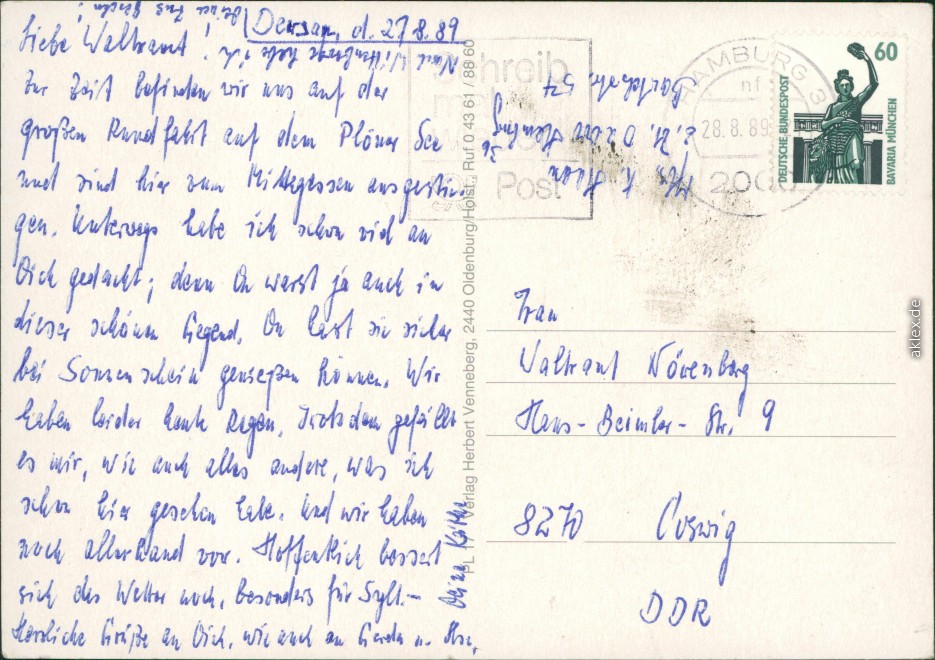 Dersau, d. 27.8.89
Liebe Waltraut!
Zur Zeit befinden wir uns auf der
großen Rundfahrt auf dem Plöner See
und sind hier zum Mittagessen ausgestie-
gen. Unterwegs habe ich schon viel an
Dich gedacht; denn Du warst ja auch in
dieser schönen Gegend. Du hast sie sicher
bei Sonnenschein genießen können. Wir
haben leider heute Regen. Trotzdem gefällt
es mir, wie auch alles andere, was ich
schon hier gesehen habe. Und wir haben
noch allerhand vor. Hoffentlich bessert
sich das Wetter noch, besonders für Sylt.-
Herzliche Grüße an Dich, wie auch an Gerda u.
Deine Käthe
PL 1 Verlag Herbert Venneberg, 2440 Oldenburg/Holst., Ruf 0 43 61 / 88 60
Schreib
mal
Post
HAMBURG
28.8.89
2000
60
DEUTSCHE BUNDESPOST
BAVARIA MÜNCHEN
Frau
Waltraut Nörenberg
Hans-Beimler-Str. 9
8270 Coswig
DDR
aklex.de